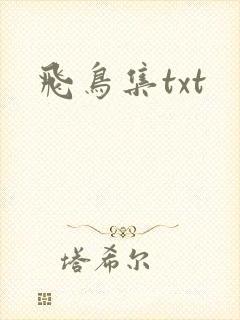 飛鳥集txt
塔希尔